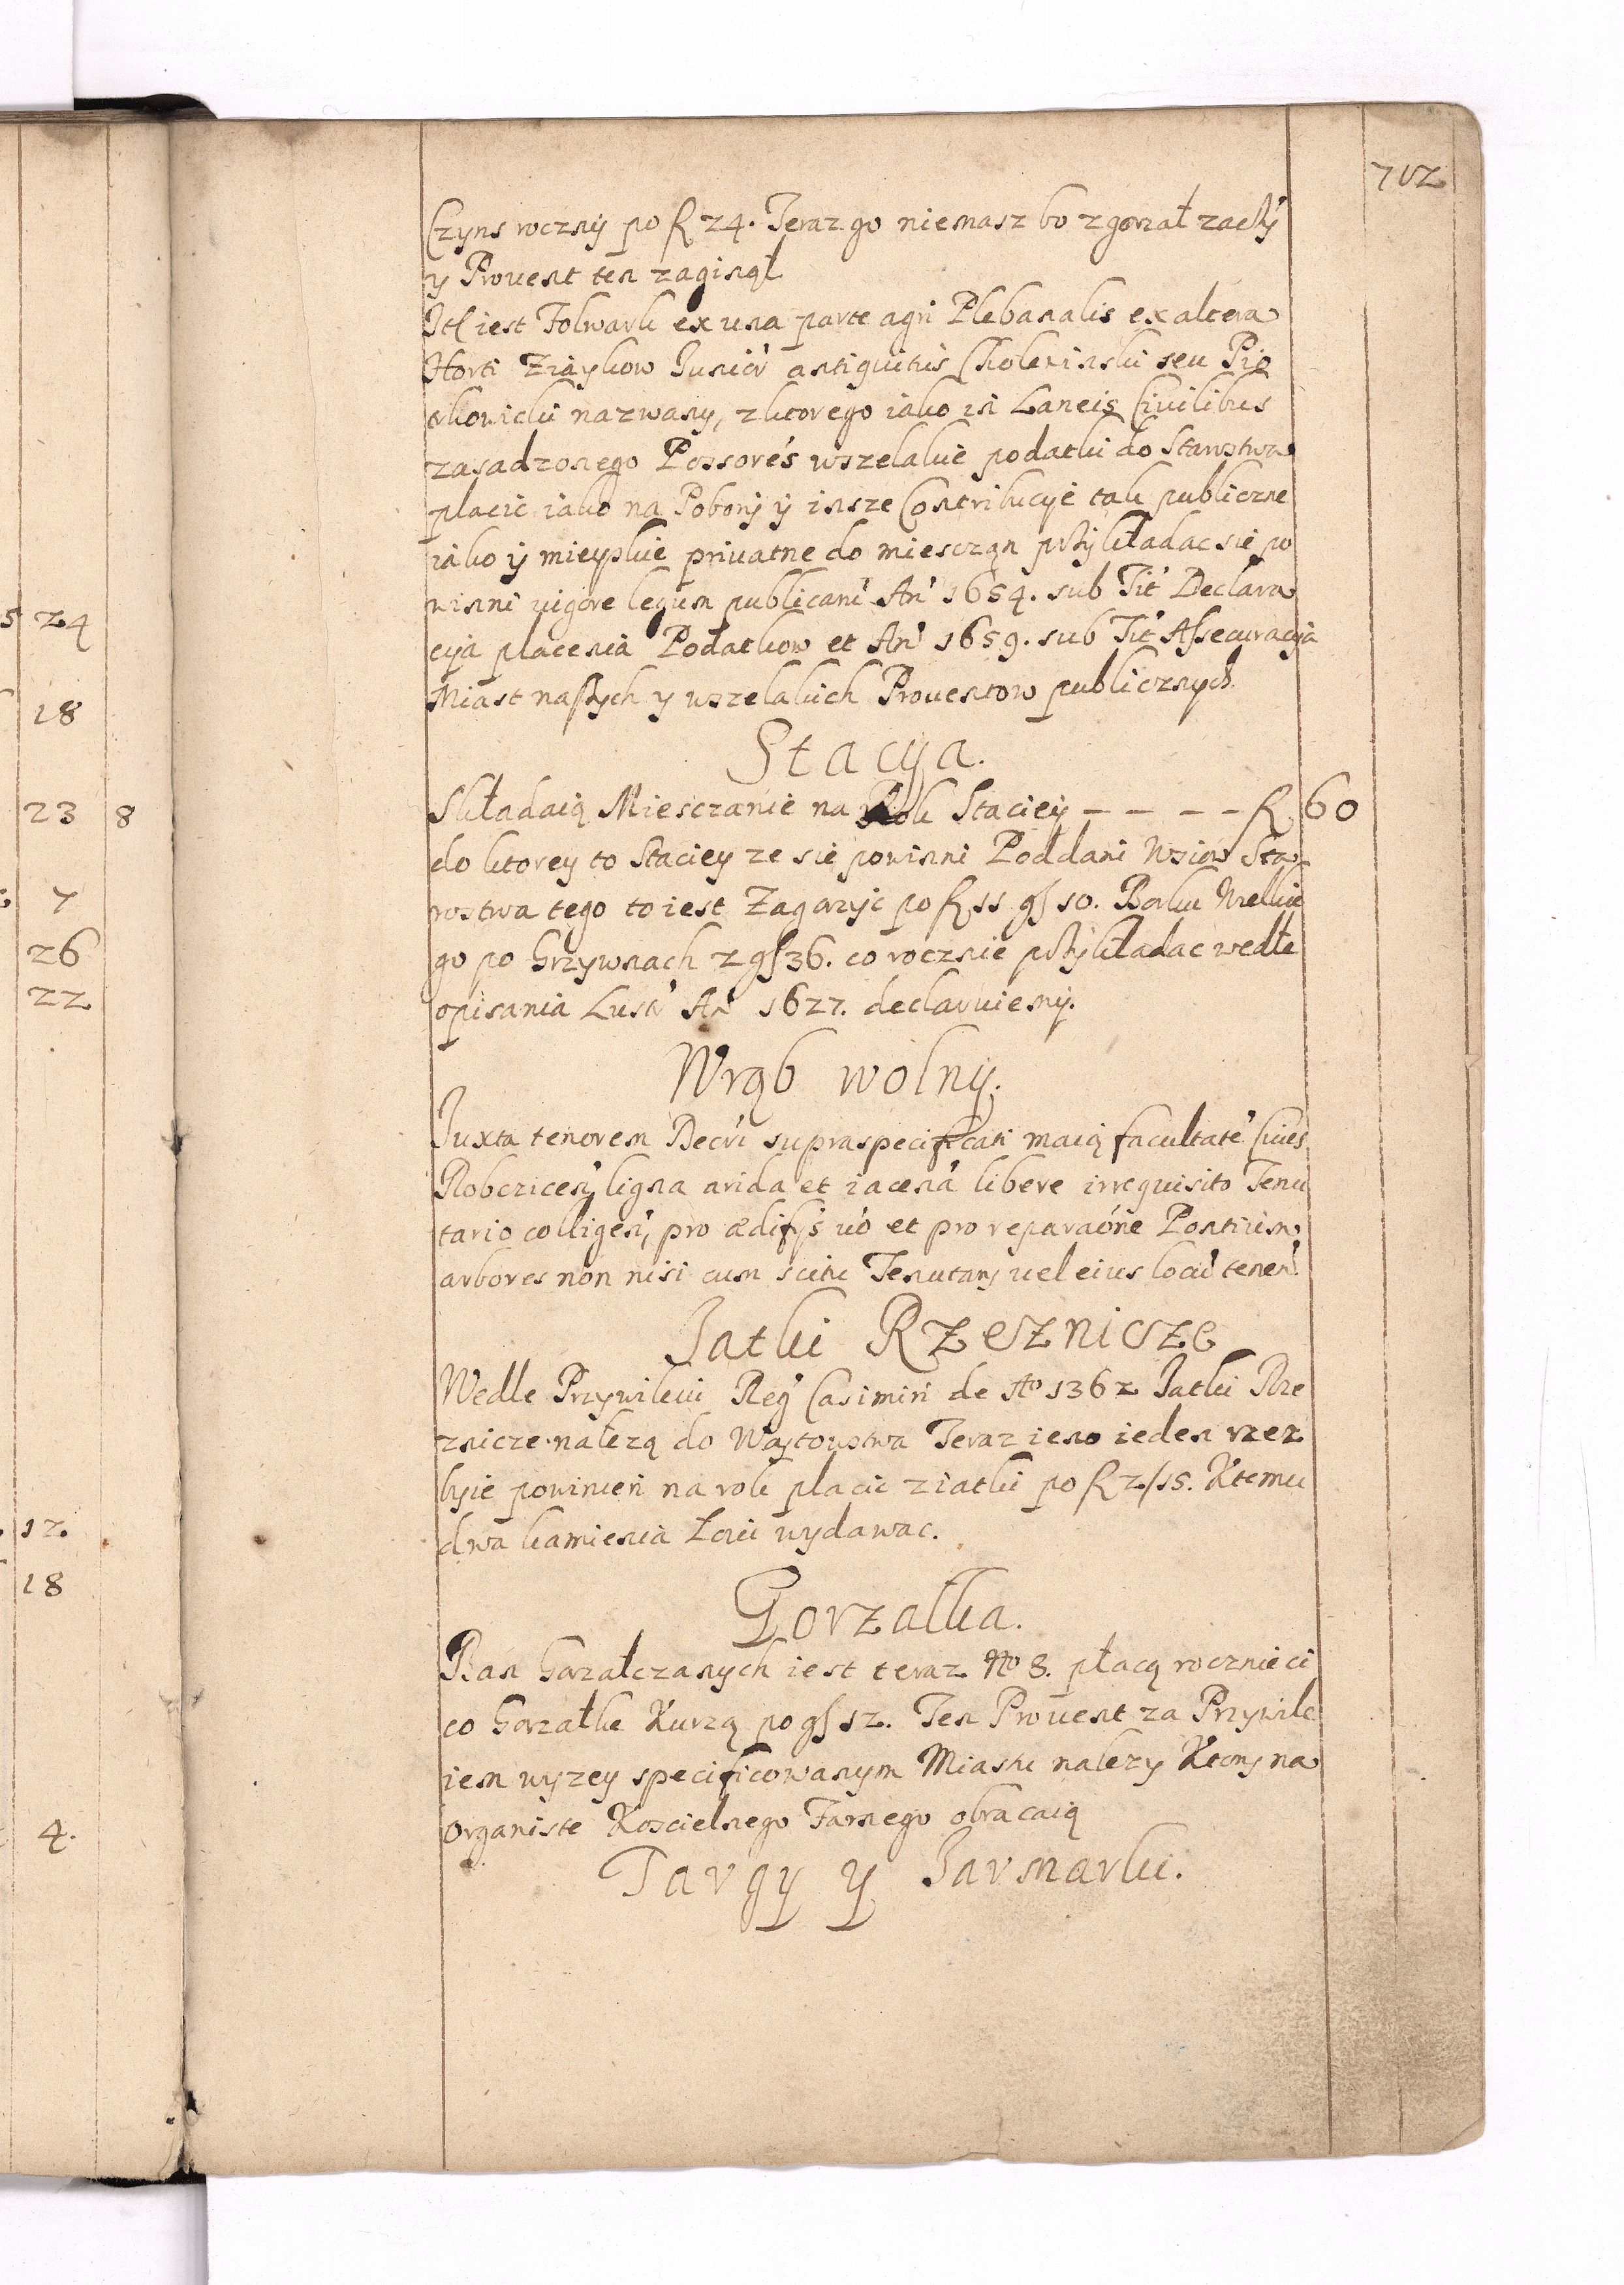 712
Czyns roczny po fl 24. Teraz go niemasz bo zgorzał
y Provent ten zaginął
Jtt iest Folwark ex una parte agri Plebanalis ex altera
Horti antiquitus seu Pio
nazwany, z ktorego iako in Laneis Civilibus
zasadzonego Possores wszelakie podatki do Starostwa
placic iako na Pobory y insze Contribucyie tak publiczne
iako y mieyskie privatne do miesczan przykładac sie po
winni vigore legum publicam An 1654. sub Tit Declara
cyia płacenia Podatkow et An 1659. sub Tit Assecuracyia
Miast naszych y wszelakich Proventow publicznych.
Stacyia.
Składaią Miesczanie na Rok Staciey – – – – fl 60
do ktorey to Staciey ze sie powinni Poddani Wsiow Sta-
rostwa tego to iest Zagorzyc po fl 11 gr 10. Borku Wielkie
go po Grzywnach 2 gr 36. co rocznie przykładac wedle
opisania Lustr An 1627. declaruiemy.
Wrąb wolny.
Juxta tenorem Decri supraspecificati maią facultate Cives
Robczicen ligna arida et iacena libere irrequisito Tenu
tario colligen, pro ædifys vo et pro reparaóne Pontium
arbores non nisi cum scitu Tenutary vel eius locu tenen.
Jatki Rzesznicze
Wedle Przywileiu Reg Casimiri de Ao 1362 Jatki Rze
znicze nalezą do Woytowstwa Teraz ieno ieden rzez
powinien na rok placic z iatki po fl 2/15. K temu
dwa kamienia Łoiu wydawac.
Gorzałka.
Ban Gorzałczanych iest teraz No 8. płacą rocznie ci
co Gorzałke Kurzą po gr 12. Ten Provent za Przywile
iem wyzey specificowanym Miastu nalezy Ktory na
Organiste Koscielnego Farnego obracaią
Targy y Jarmarki.
5 24
18
23 8
7
26
22
12.
18
4.